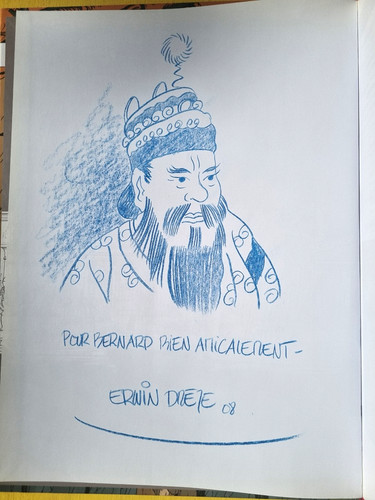 POUR BERNARD BIEN AMICALEMENT -
ERWIN DREZE 08